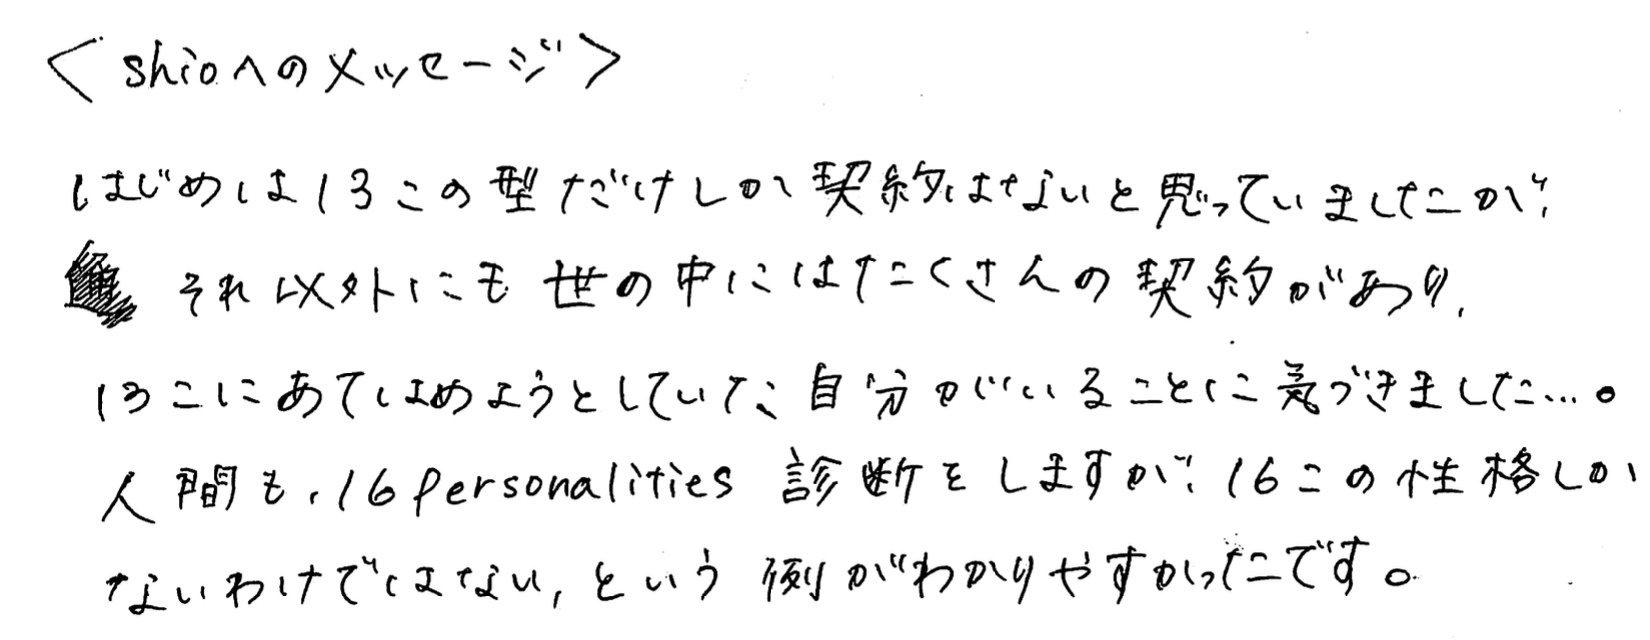 ＜shioへのメッセージ＞
はじめは13この型だけしか契約はないと思っていましたが、
それ以外にも世の中にはたくさんの契約があり、
13こにあてはめようとしていた自分がいることに気づきました…。
人間も、16personalities診断をしますが、16この性格しか
ないわけではない、という例がわかりやすかったです。